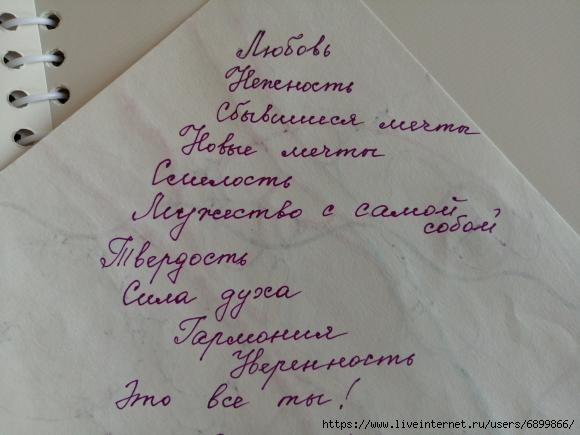 Любовь
Нежность
Сбывшиеся мечты
Новые мечты
Смелость
Мужество с самой
собой
Твердость
Сила духа
Гармония
Уверенность
Это все ты!
https://www.liveinternet.ru/users/6899866/